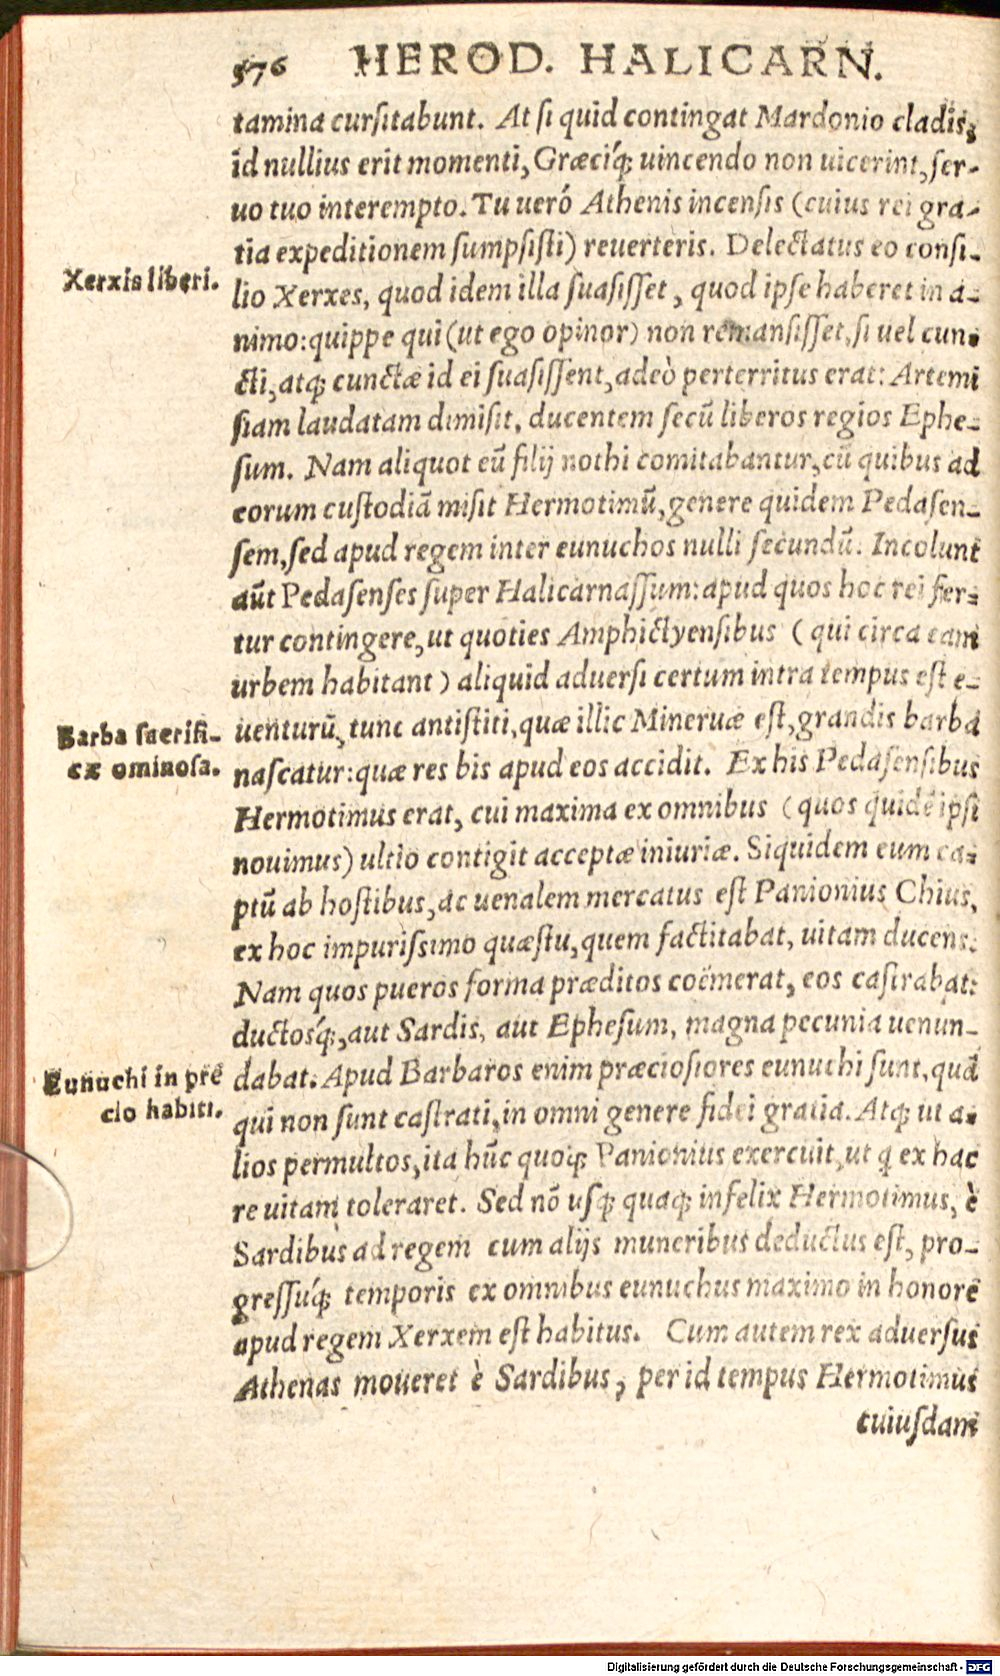 576 HEROD. HALICARN.
tamina cursitabunt. At si quid contingat Mardonio cladis,
id nullius erit momenti, Græciq́; uincendo non uicerint, ser-
uo tuo interempto. Tu ueró Athenis incensis (cuius rei gra-
tia expeditionem sumpsisti) reuerteris. Delectatus eo consi-
Xerxis liberi.
lio Xerxes, quod idem illa suasisset, quod ipse haberet in a-
nimo: quippe qui (ut ego opinor) non remansisset, si uel cun-
cti, atq; cunctæ id ei suasissent, adeò perterritus erat: Artemi
siam laudatam dimisit, ducentem secū liberos regios Ephe-
sum. Nam aliquot eū filij nothi comitabantur, cū quibus ad
eorum custodiā misit Hermotimū, genere quidem Pedasen-
sem, sed apud regem inter eunuchos nulli secundū. Incolunt
aūt Pedasenses super Halicarnassum: apud quos hoc rei fer-
tur contingere, ut quoties Amphictyensibus (qui circa eam
urbem habitant) aliquid aduersi certum intra tempus est e-
Barba sacrifi-
cæ ominosa.
uenturū, tunc antistiti, quæ illic Mineruæ est, grandis barba
nascatur: quæ res bis apud eos accidit. Ex his Pedasensibus
Hermotimus erat, cui maxima ex omnibus (quos quidē ipsi
nouimus) ultio contigit acceptæ iniuriæ. Siquidem eum ca-
ptū ab hostibus, ac uenalem mercatus est Panionius Chius,
ex hoc impurissimo quæstu, quem factitabat, uitam ducens.
Nam quos pueros forma præditos coëmerat, eos castrabat:
ductosq́;, aut Sardis, aut Ephesum, magna pecunia uenun-
Eunuchi in pre
cio habiti.
dabat. Apud Barbaros enim præciosiores eunuchi sunt, quā
qui non sunt castrati, in omni genere fidei gratia. Atq; ut a-
lios permultos, ita hūc quoq; Panionius exercuit, ut q ex hac
re uitam toleraret. Sed nō usq; quaq; infelix Hermotimus, è
Sardibus ad regem cum alijs muneribus deductus est, pro-
gressúq; temporis ex omnibus eunuchus maximo in honore
apud regem Xerxem est habitus. Cum autem rex aduersus
Athenas moueret è Sardibus, per id tempus Hermotimus
cuiusdam
Digitalisierung gefördert durch die Deutsche Forschungsgemeinschaft - DFG